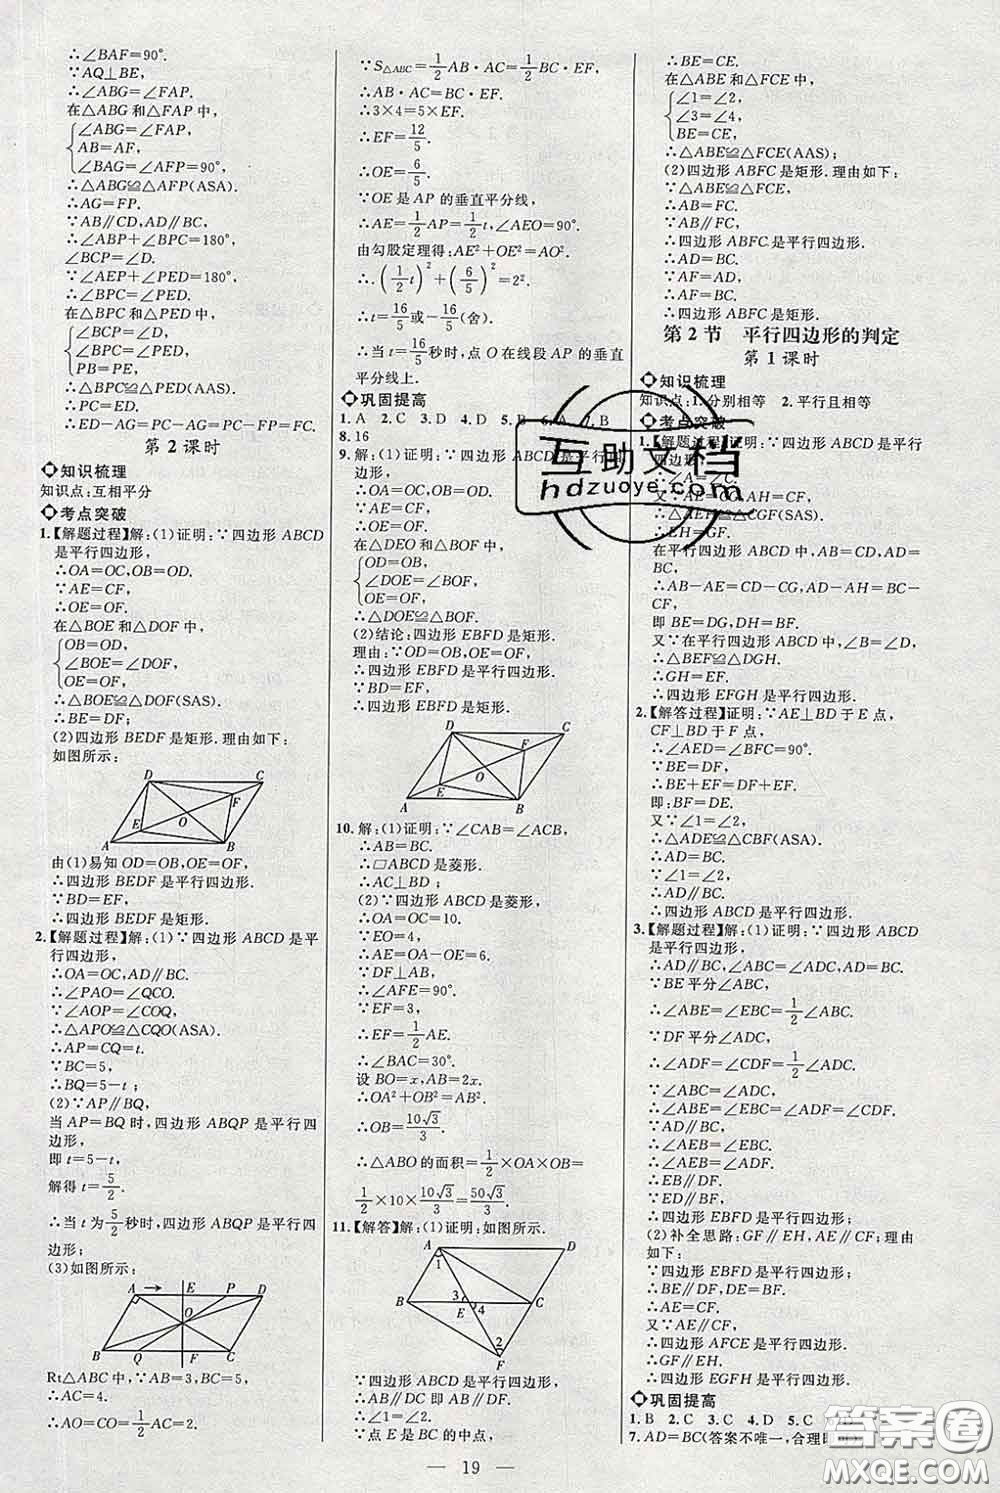 ∴∠BAF=90°.
∵AQ⊥BE,
∴∠ABG=∠FAP.
在△ABG和△FAP中,
∠ABG=∠FAP,
AB=AF,
∠BAG=∠AFP=90°.
∴△ABG≌△AFP(ASA).
∴AG=FP.
∵AB∥CD,AD∥BC.
∴∠ABP+∠BPC=180°,
∠BCP=∠D.
∵∠AEP+∠PED=180°.
∴∠BPC=∠PED.
在△BPC和△PED中,
∠BCP=∠D,
∠BPC=∠PED,
PB=PE,
∴PC=ED.
∴ED-AG=PC-AG=PC-FP=FC.
第2课时
知识梳理
知识点:互相平分
考点突破
1.【解题过程】解:(1)证明:∵四边形ABCD
是平行四边形,
∴OA=OC,OB=OD.
∵AE=CF,
∴OE=OF.
在△BOE和△DOF中,
OB=OD,
∠BOE=∠DOF,
OE=OF,
∴△BOE≌△DOF(SAS).
∴BE=DF;
(2)四边形BEDF是矩形.理由如下:
如图所示:
D C F E O A B
由(1)易知OD=OB,OE=OF,
∴四边形BEDF是平行四边形.
∵BD=EF,
∴四边形BEDF是矩形.
2.【解题过程】解:(1)∵四边形ABCD是平
行四边形,
∴OA=OC,AD∥BC.
∴∠PAO=∠QCO.
∵∠AOP=∠COQ,
∴△APO≌△CQO(ASA).
∴AP=CQ=t.
∵BC=5,
∴BQ=5-t;
(2)∵AP∥BQ,
当AP=BQ时,四边形ABQP是平行四
边形,
即t=5-t,
解得t=5/2.
∴当t为5/2秒时,四边形ABQP是平行四
边形;
(3)如图所示:
A E P D O B Q F C
Rt△ABC中,∵AB=3,BC=5,
∴AC=4.
∴AO=CO=1/2AC=2.
∵S△ABC=1/2AB·AC=1/2BC·EF,
∴AB·AC=BC·EF.
∴3×4=5×EF.
∴EF=12/5.
∴OE=6/5.
∵OE是AP的垂直平分线,
∴AE=1/2AP=1/2t,∠AEO=90°.
由勾股定理得:AE²+OE²=AO².
∴(1/2t)²+(6/5)²=2²
∴t=16/5或-16/5(舍).
∴当t=16/5秒时,点O在线段AP的垂直
平分线上.
巩固提高
1.A 2.C 3.D 4.D 5.B 6.A 7.B
8.16
9.解:(1)证明:∵四边形ABCD是平行四
边形,
∴OA=OC,OB=OD.
∵AE=CF,
∴OE=OF
在△DEO和△BOF中,
OD=OB,
∠DOE=∠BOF,
OE=OF.
∴△DOE≌△BOF.
(2)结论:四边形EBFD是矩形.
理由:∵OD=OB,OE=OF,
∴四边形EBFD是平行四边形.
∵BD=EF,
∴四边形EBFD是矩形.
D C F O E A B
10.解:(1)证明:∵∠CAB=∠ACB,
∴AB=BC.
∴□ABCD是菱形.
∴AC⊥BD;
(2)∵四边形ABCD是菱形,
∴OA=OC=10.
∵EO=4,
∴AE=OA-OE=6.
∵DF⊥AB,
∴∠AFE=90°.
∵EF=3,
∴EF=1/2AE.
∴∠BAC=30°.
设BO=x,AB=2x.
∴OA²+OB²=AB².
∴OB=10√3/3.
∴△ABO的面积=1/2×OA×OB=
1/2×10×10√3/3=50√3/3.
11.【解答】解:(1)证明:如图所示.
A D 1 3 B E 4 C 2 F
∵四边形ABCD是平行四边形,
∴AB∥DC即AB∥DF,
∴∠1=∠2.
∵点E是BC的中点,
∴BE=CE.
在△ABE和△FCE中,
∠1=∠2,
∠3=∠4,
BE=CE,
∴△ABE≌△FCE(AAS);
(2)四边形ABFC是矩形.理由如下:
∵△ABE≌△FCE,
∴AB=FC.
∵AB∥FC,
∴四边形ABFC是平行四边形.
∵AF=AD,
∴AF=BC.
∴四边形ABFC是矩形.
第2节 平行四边形的判定
第1课时
知识梳理
知识点:1.分别相等 2.平行且相等
考点突破
1.【解题过程】证明:∵四边形ABCD是平行
四边形,
∴∠A=∠C.
又∵AE=CG,AH=CF,
∴△AEH≌△CGF(SAS).
∴EH=GF.
在平行四边形ABCD中,AB=CD,AD=
BC,
∴AB-AE=CD-CG,AD-AH=BC-
CF,
即BE=DG,DH=BF.
又∵在平行四边形ABCD中,∠B=∠D,
∴△BEF≌△DGH.
∴GH=EF.
∴四边形EFGH是平行四边形.
2.【解答过程】证明:∵AE⊥BD于E点,
CF⊥BD于F点,
∴∠AED=∠BFC=90°.
∵BE=DF,
∴BE+EF=DF+EF.
即:BF=DE.
又∵∠1=∠2,
∴△ADE≌△CBF(ASA).
∴AD=BC.
∵∠1=∠2,
∴AD∥BC.
∴四边形ABCD是平行四边形.
3.【解题过程】解:(1)证明:∵四边形ABCD
是平行四边形,
∴AD∥BC,∠ABC=∠ADC.
∵BE平分∠ABC,
∴∠ABE=∠EBC=1/2∠ABC.
∵DF平分∠ADC,
∴∠ADF=∠CDF=1/2∠ADC.
∵∠ABC=∠ADC,
∴∠ABE=∠EBC=∠ADF=∠CDF.
∵AD∥BC,
∴∠AEB=∠EBC.
∴∠AEB=∠ADF.
∴EB∥DF.
∵ED∥BF,
∴四边形EBFD是平行四边形;
(2)补全思路:GF∥EH,AE∥CF;理由
如下:
∵四边形EBFD是平行四边形;
∴BE∥DF,DE=BF,
∴AE=CF.
又∵AE∥CF,
∴四边形AFCE是平行四边形.
∴GF∥EH.
∴四边形EGFH是平行四边形.
巩固提高
1.B 2.C 3.C 4.D 5.C
7.AD=BC(答案不唯一,合理即可)
— 19 —
互助文档
hdzuoye.com
答案圈
MXQE.COM